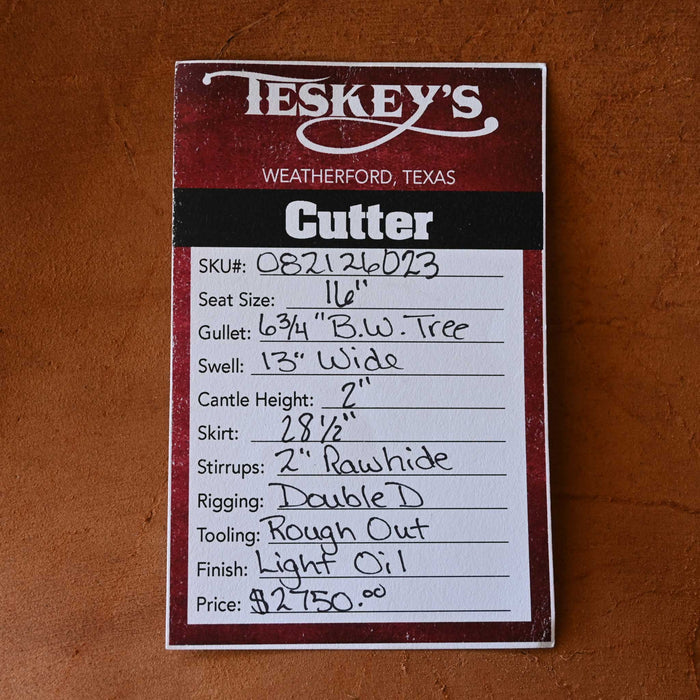 TESKEY'S
WEATHERFORD, TEXAS
Cutter
SKU#: 082126023
Seat Size: 16"
Gullet: 6 3/4" B.W. Tree
Swell: 13" Wide
Cantle Height: 2"
Skirt: 28 1/2"
Stirrups: 2" Rawhide
Rigging: Double D
Tooling: Rough Out
Finish: Light Oil
Price: $2750.00